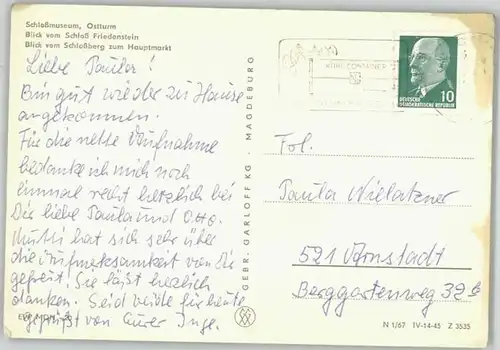 Schloßmuseum, Ostturm
Blick vom Schloß Friedenstein
Blick vom Schloßberg zum Hauptmarkt
Liebe Paula!
Bin gut wieder zu Hause
angekommen.
Für die nette Aufnahme
bedanke ich mich noch
einmal recht herzlich bei
Dir liebe Paula und Otto.
Mutti hat sich sehr über
die Aufmerksamkeit von Dir
gefreut. Sie läßt herzlich
danken. Seid beide für heute
gegrüßt von Eurer Inge.
GEBR. GARLOFF KG · MAGDEBURG
CONTAINER
DEUTSCHE
DEMOKRATISCHE REPUBLIK
10
Frl.
Paula
521 Arnstadt
Berggartenweg 32
N 1/67 IV-14-45 Z 3535